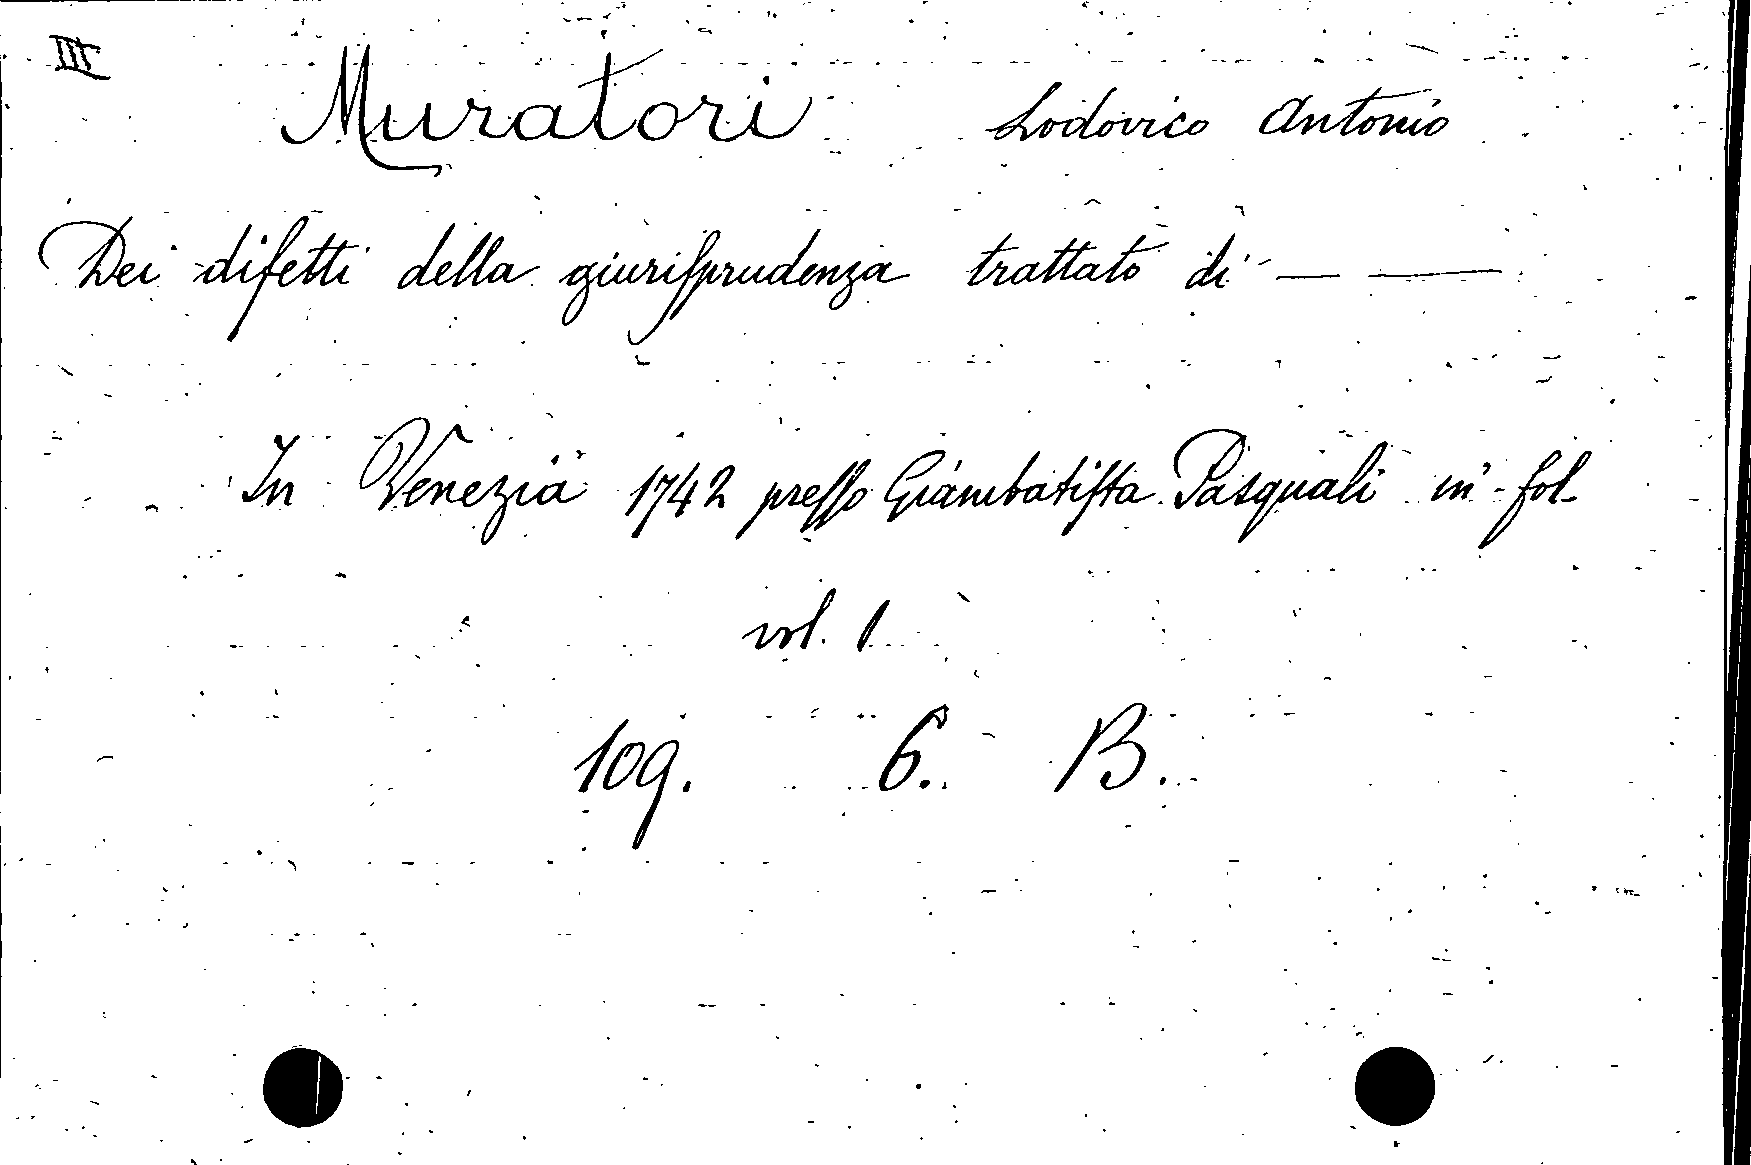 III
Muratori Lodovico Antonio
Dei difetti della giurisprudenza trattato di — —
In Venezia 1742 presso Giambatista Pasquali in fol
vol. 1
109. 6. B.